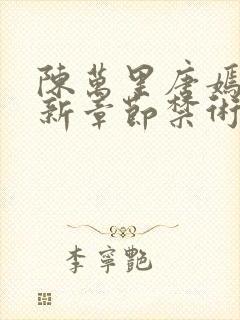 陳萬里唐嫣
新章節禁術
李寧艷